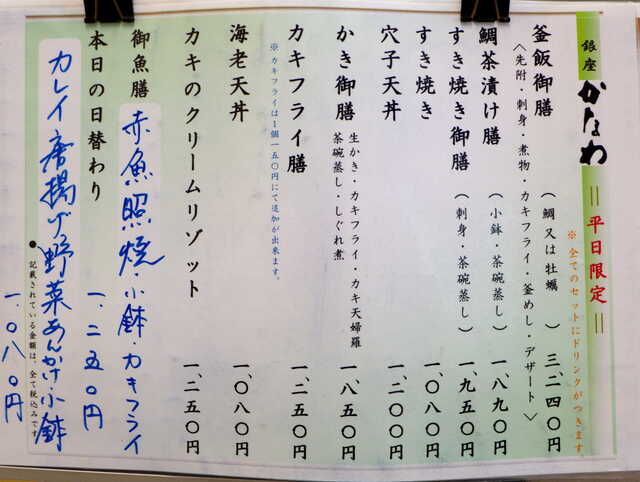 銀座 かなわ ＝平日限定＝
※全てのセットにドリンクがつきます。
釜飯御膳 （鯛又は牡蠣） 三、二四〇円
〈先附・刺身・煮物・カキフライ・釜めし・デザート〉
鯛茶漬け膳 （小鉢・茶碗蒸し） 一、八九〇円
すき焼き御膳 （刺身・茶碗蒸し） 一、九五〇円
すき焼き 一、〇八〇円
穴子天丼 一、二〇〇円
かき御膳 生かき・カキフライ・カキ天婦羅 一、八五〇円
茶碗蒸し・しぐれ煮
カキフライ膳 一、二五〇円
※カキフライは1個一五〇円にて追加が出来ます。
海老天丼 一、〇八〇円
カキのクリームリゾット 一、二五〇円
御魚膳 赤魚照焼・小鉢・カキフライ
一、二五〇円
本日の日替わり
カレイ唐揚げ野菜あんかけ小鉢
一、〇八〇円
●記載されている金額は、全て税込みです